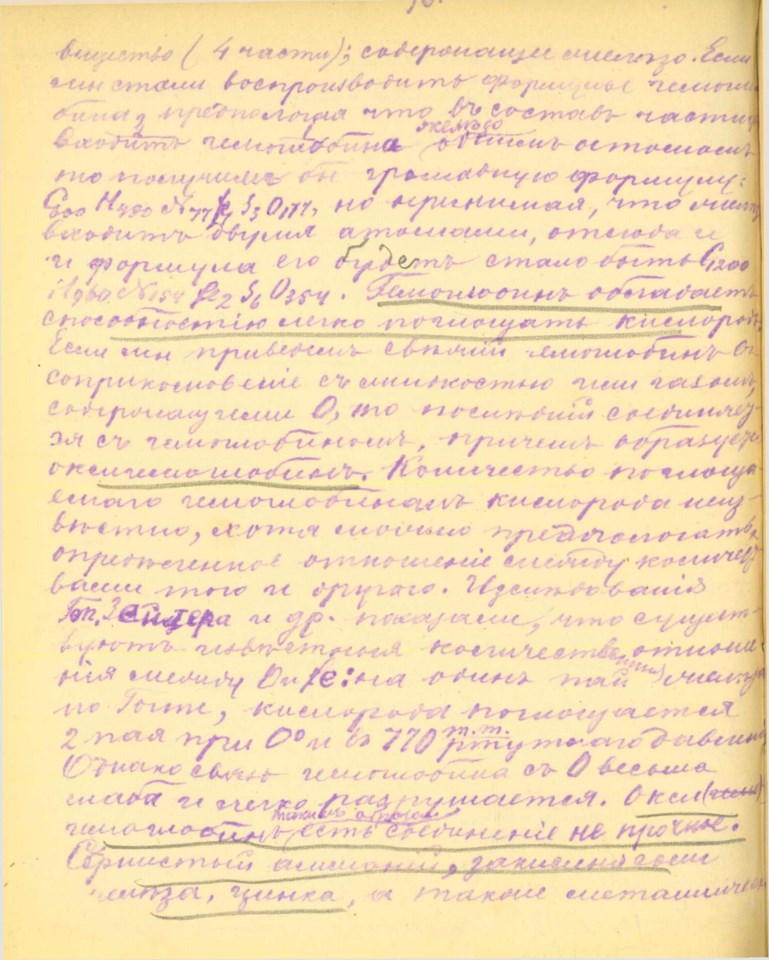 вещество (4 части); содержащее железо. Если
мы стали воспроизводить формулу гемогло-
бина, предполагая что въ составъ частицы
входитъ гемоглобина железо однимъ атомомъ
то получимъ бы громадную формулу:
C600 H480 N77 Fe S3 O177, но принимая, что железо
входитъ двумя атомами, отсюда и
и формула его будетъ стало быть C1200
H960 N154 Fe2 S6 O354. Гемоглобинъ обладаетъ
способностію легко поглощать кислородъ.
Если мы приведемъ свежій гемоглобинъ въ
соприкосновеніе съ жидкостью или газомъ,
содержащими O, то последній соединяет-
ся съ гемоглобиномъ, причемъ образуется
оксигемоглобинъ. Количество поглоща-
емаго гемоглобиномъ кислорода неиз-
вестно, хотя можно предпологать
определенное отношеніе между количест-
вами того и другого. Изследованія
Гоп. Зейлера и др. показали, что сущест-
вуютъ известныя количественныя отноше-
нія между O и Fe: на одинъ пай железа
по Гоппе, кислорода поглощается
2 пая при 0° и въ 770 m.m. ртутнаго давленія
Однако связь гемоглобина съ O весьма
слаба и легко разрушается. Окси(гемо)
гемоглобинъ такимъ образомъ есть соединеніе не прочное.
Сернистый аммоній, закисныя соли
железа, цинка, а также металлическ